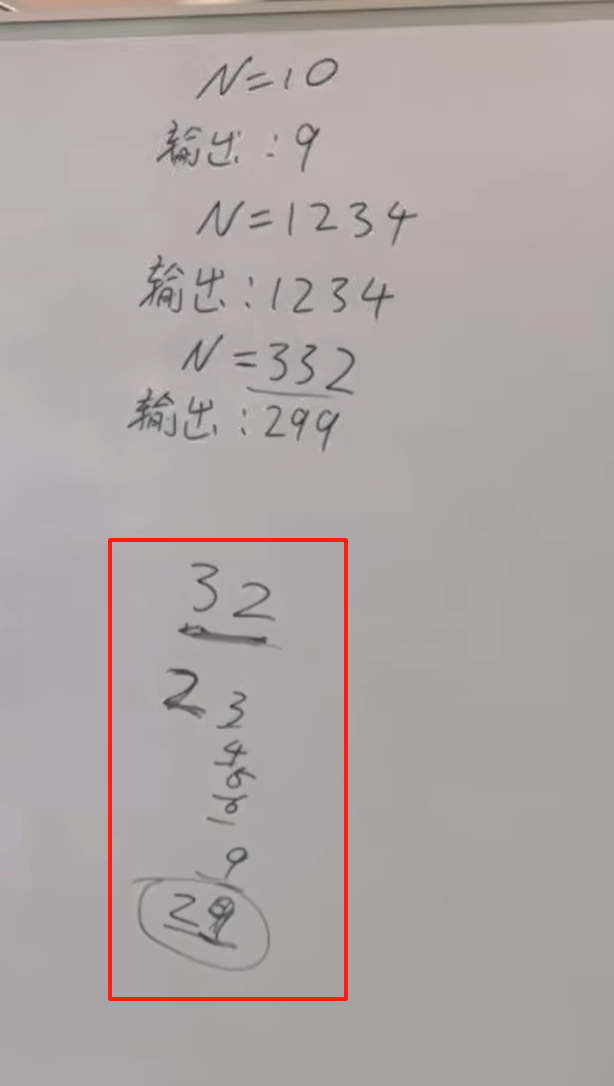 N=10
输出:9
N=1234
输出:1234
N=332
输出:299
32
23
4
5
6
9
29